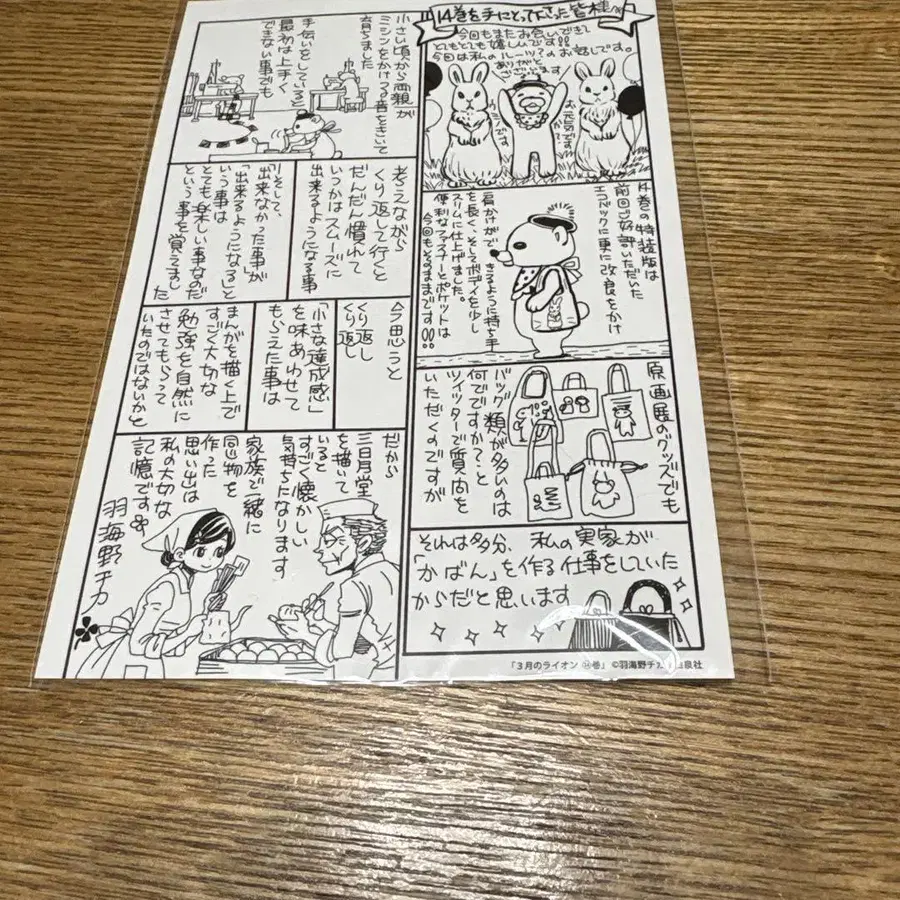 14巻を手にとって下さった皆様へ
今回もまたお会いできて
とてもとても嬉しいです!!
今回は私のルーツ?のお話しです。
ありがとう
ございます
お元気ですか?
ウミノです
14巻の特装版は
前回ご好評いただいた
エコバックに更に改良をかけ
肩かけができるように持ち手
を長く、そしてボディを少し
スリムに仕上げました。
便利なファスナーとポケットは
今回もそのままです!!
原画展のグッズでも
バッグ類が多いのは
何でですか?と
ツイッターで質問を
いただくのですが
それは多分、私の実家が
「かばん」を作る仕事をしていた
からだと思います
小さい頃から両親が
ミシンをかける音をきいて
育ちました
手伝いをしていると
最初は上手く
できない事でも
考えながら
くり返して行くと
だんだん慣れて
いつかはスムーズに
出来るようになる事
そして、
「出来なかった事」が
「出来るようになる」と
いう事は
とても楽しい事なのだ
という事を覚えました
今思うと
くり返し
くり返し
「小さな達成感」
を味あわせて
もらえた事は
まんがを描く上で
すごく大切な
勉強を自然に
させてもらって
いたのではないかと
だから
三日月堂
を描いて
いると
すごく懐かしい
気持ちになります
家族で一緒に
同じ物を
作った
思い出は
私の大切な
記憶です
羽海野チカ
「3月のライオン⑭巻」©羽海野チカ/白泉社